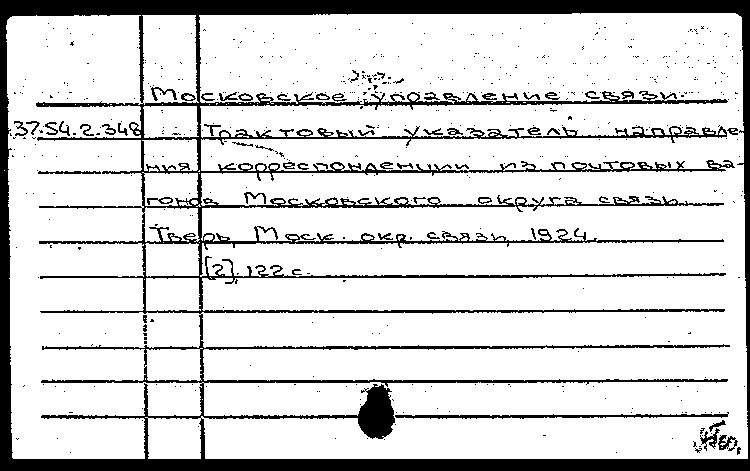 Московское управление связи.
37.54.2.348 Трактовый указатель направле-
ния корреспонденции из почтовых ва-
гонов Московского округа связи.
Тверь, Моск. окр. связи, 1924.
[2], 122 с.